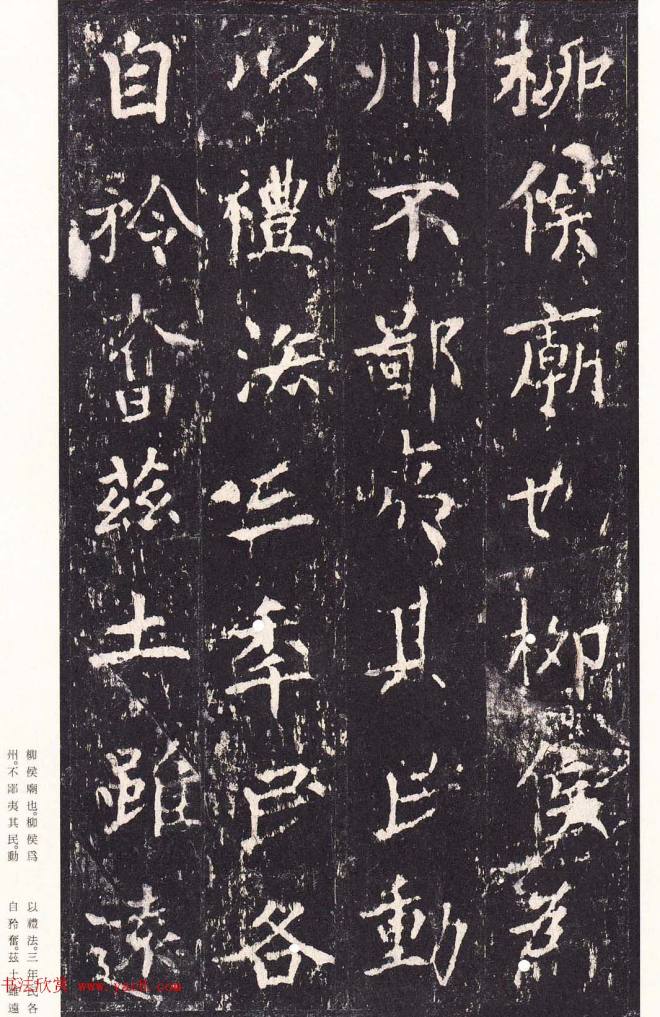 柳侯廟也柳侯為
州不鄙夷其民動
以禮法三年民各
自矜奮茲土雖遠
柳侯廟也。柳侯爲
州。不鄙夷其民。動
以禮法。三年民各
自矜奮。茲土雖遠
书法欣赏 www.yac8.com